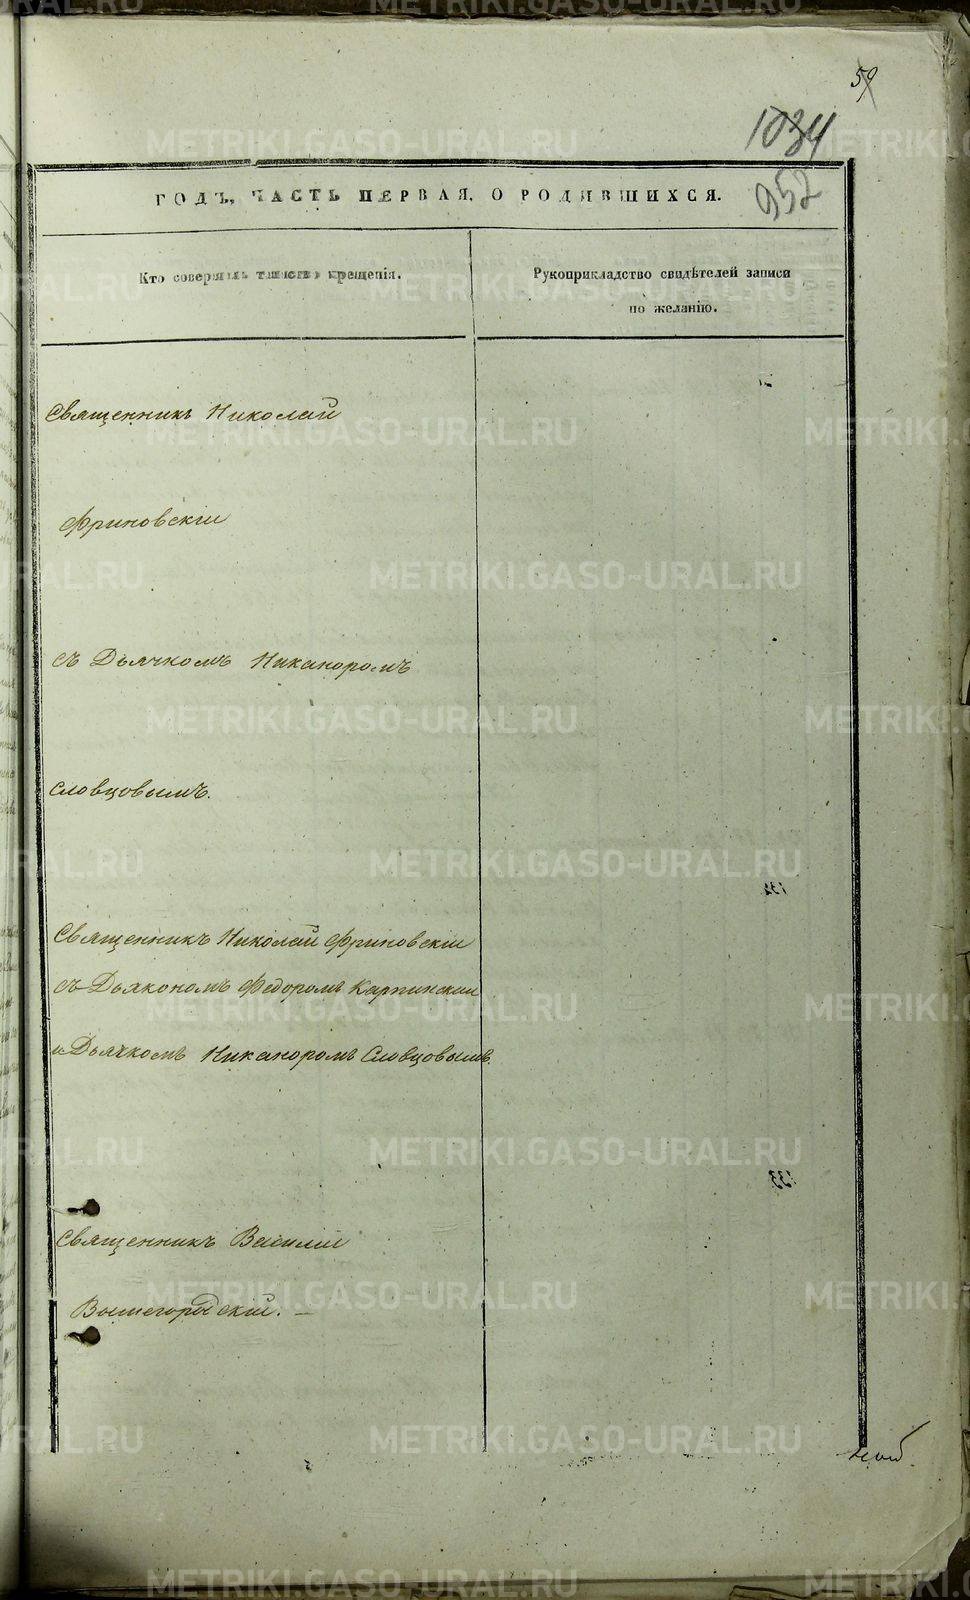 59
1034
952
ГОДЪ, ЧАСТЬ ПЕРВАЯ, О РОДИВШИХСЯ.
Кто совершалъ таинство крещенія.
Рукоприкладство свидѣтелей записи
по желанію.
Священникъ Николай
Фриновскій
съ Дьячкомъ Никаноромъ
Словцовымъ.
132
Священникъ Николай Фриновскій
съ Дьякономъ Федоромъ Карпинским
и Дьячкомъ Никаноромъ Словцовымъ.
133
Священникъ Василій
Вышегородскій. —
METRIKI.GASO-URAL.RU